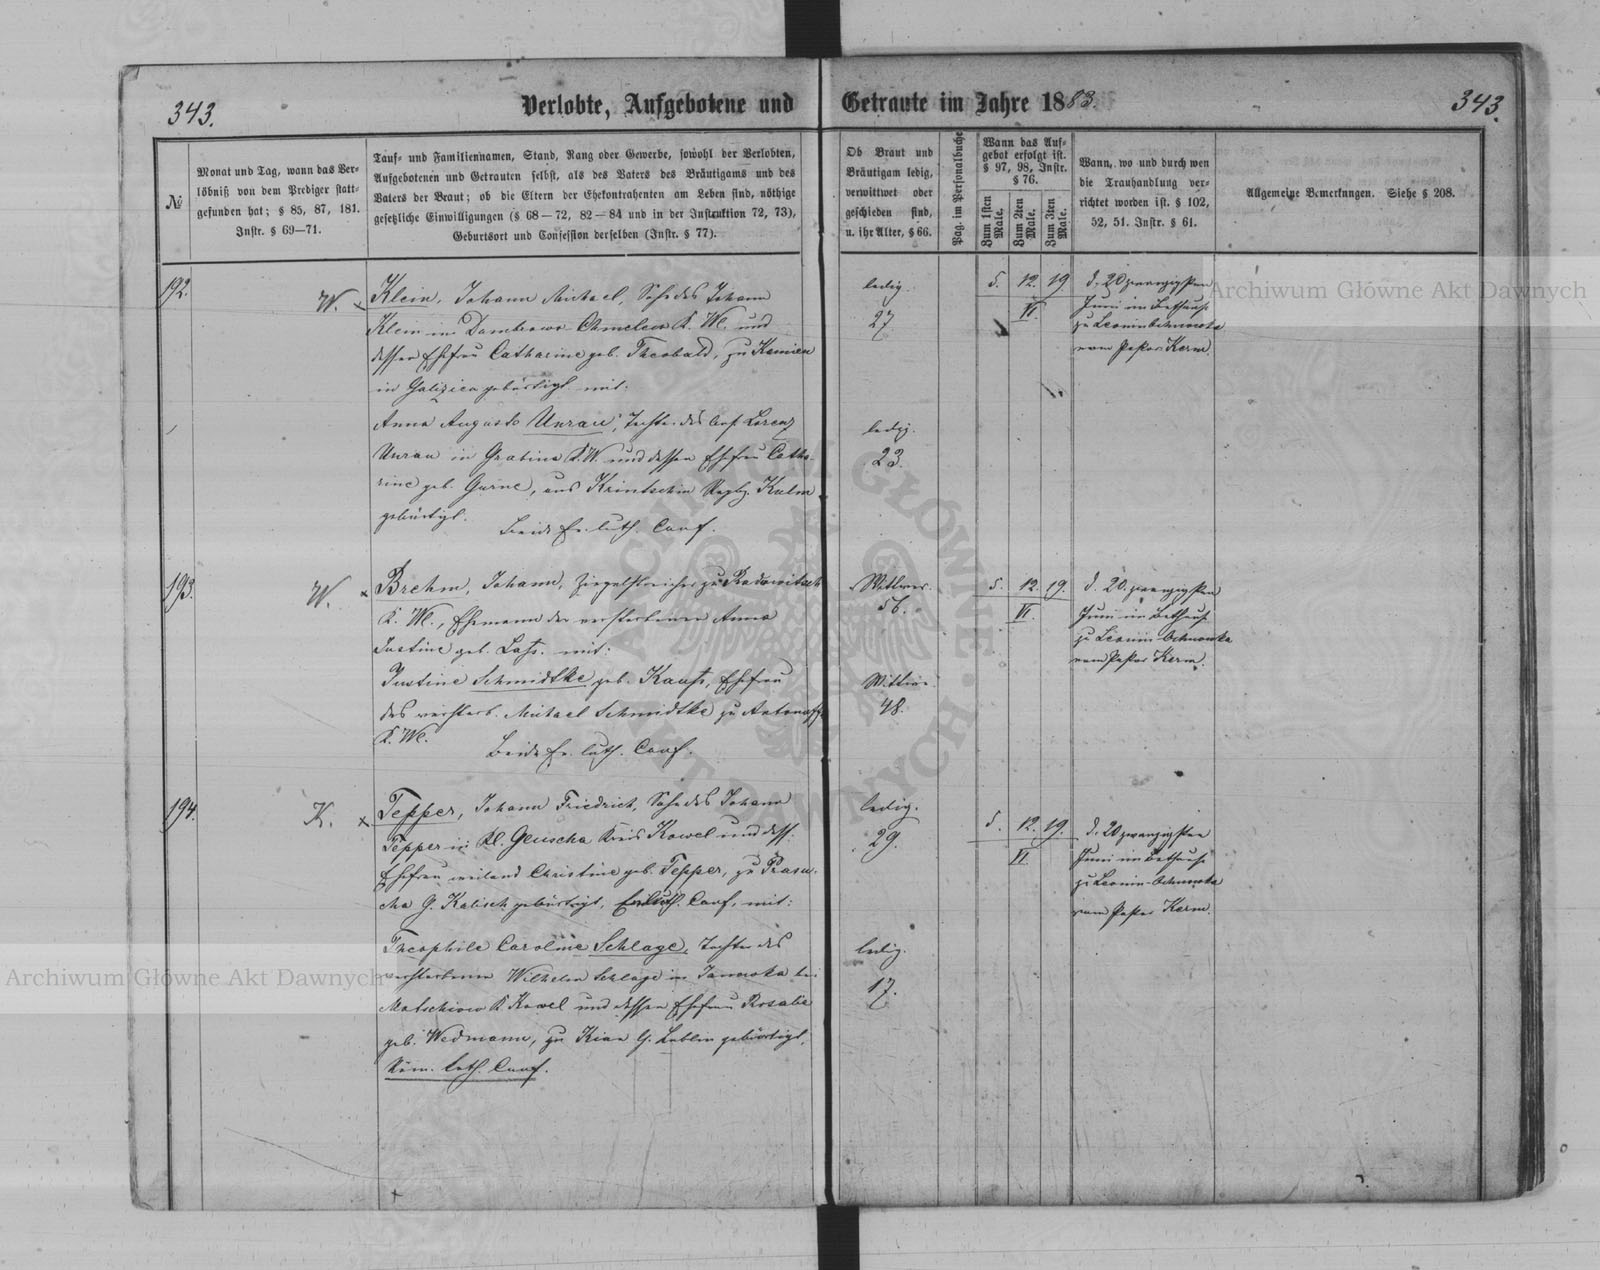 343.
Verlobte, Aufgebotene und
Getraute im Jahre 1883.
343.
№
Monat und Tag, wann das Ver-
löbniß von dem Prediger statt-
gefunden hat; § 85, 87, 181.
Instr. § 69—71.
Tauf- und Familiennamen, Stand, Rang oder Gewerbe, sowohl der Verlobten,
Aufgebotenen und Getrauten selbst, als des Vaters des Bräutigams und des
Vaters der Braut; ob die Eltern der Ehekontrahenten am Leben sind, nöthige
gesetzliche Einwilligungen (§ 68—72, 82—84 und in der Instruktion 72, 73),
Geburtsort und Confession derselben (Instr. § 77).
Ob Braut und
Bräutigam ledig,
verwittwet oder
geschieden sind,
u. ihr Alter, § 66.
Pag. im Personalbuche
Wann das Auf-
gebot erfolgt ist.
§ 97, 98, Instr.
§ 76.
Zum 1sten Male.
Zum 2ten Male.
Zum 3ten Male.
Wann, wo und durch wen
die Trauhandlung ver-
richtet worden ist. § 102,
52, 51. Instr. § 61.
Allgemeine Bemerkungen. Siehe § 208.
192.
W.
Klein, Johann Michael, Sohn des Johann
Klein in Dambrowa-Chmelew K. Wl. und
dessen Ehefrau Catharine geb. Theobald, zu Kamien
in Galizien gebürtigt mit:
Anna Auguste Unrau, Tochter des Lorenz
Unrau in Grabina K. W. und dessen Ehefrau Catha-
rine geb. Garne, aus Kulm
gebürtigt.
Beide Ev. luth. Conf.
ledig.
27
ledig.
23.
5. 12. 19
VI.
d. 20 zwanzigsten
Juni im Bethause
zu Leonin-Ochnowka
vom Pastor Kerm.
193.
W.
Brehm, Johann, Ziegelstreicher zu Radowitsch
K. Wl., Ehemann der verstorbenen Anna
Justine geb. Lass. mit:
Justine Schmidtke geb. Ehefrau
des verstorb. Michael Schmidtke zu
K. Wl.
Beide Ev. luth. Conf.
Wittwer
56.
Wittwe
48.
5. 12. 19.
VI.
d. 20. zwanzigsten
Juni im Bethause
zu Leonin-Ochnowka
vom Pastor Kerm.
194.
K.
Tepper, Johann Friedrich, Sohn des Johann
Tepper in Kl. Gluscha Kreis Kowel und dess.
Ehefrau weiland Christine geb. Tepper, zu Prasu-
cha G. Kalisch gebürtigt, Ev. luth. Conf. mit:
Theophile Caroline Schlage, Tochter des
verstorbenen Wilhelm Schlage in Janowka bei
Matschiow K Kowel und dessen Ehefrau Rosalie
geb. Wedmann, zu Kian G. Lublin gebürtigt,
Röm. cath. Conf.
ledig.
29.
ledig.
17.
5. 12. 19.
VI.
d. 20 zwanzigsten
Juni im Bethause
zu Leonin-Ochnowka
vom Pastor Kerm.
Archiwum Główne Akt Dawnych
Archiwum Główne Akt Dawnych
ARCHIWUM GŁÓWNE AKT DAWNYCH